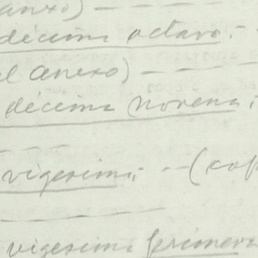 anexo) - - - -
décima octava. -
el anexo) - - - -
décima novena.
- - - -
vigesima. - - (cop
- - - -
vigesima primera